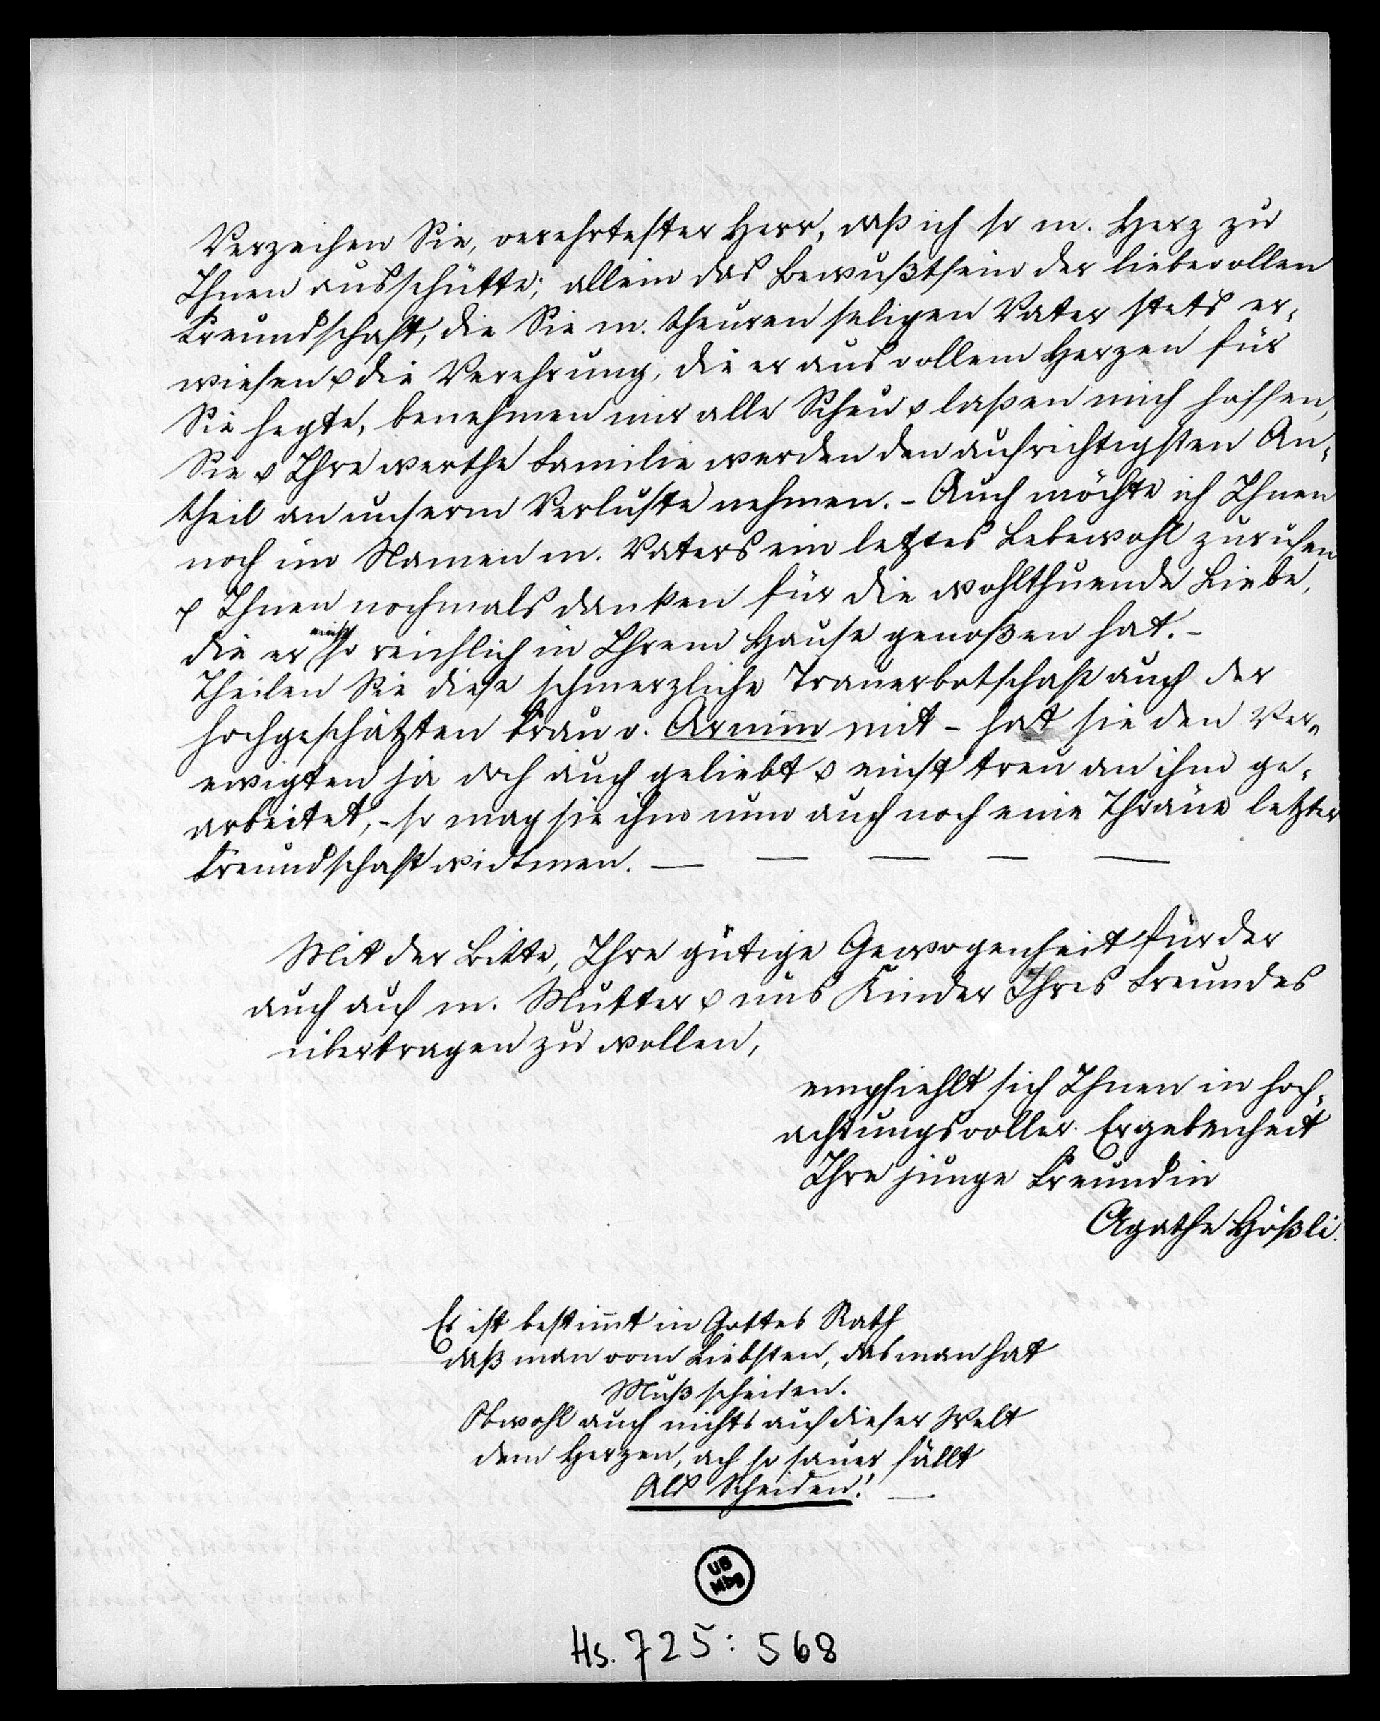 Verzeihen Sie, verehrtester Herr, daß ich so m. Herz zu
Ihnen ausschütte; allein das Bewußtsein der liebevollen
Freundschaft, die Sie m. theuren seligen Vater stets er-
wiesen & die Verehrung, die er aus vollem Herzen für
Sie hegte, benehmen mir alle Scheu & laßen mich hoffen,
Sie & Ihre werthe Familie werden den aufrichtigsten An-
theil an unserm Verluste nehmen. – Auch möchte ich Ihnen
noch im Namen m. Vaters ein letztes Lebewohl zurufen
& Ihnen nochmals danken für die wohlthuende Liebe,
die er einst so reichlich in Ihrem Hause genoßen hat. –
Theilen Sie diese schmerzliche Trauerbotschaft auch der
hochgeschätzten Frau v. Arnim mit – hat sie den Ver-
ewigten ja doch auch geliebt & einst treu an ihm ge-
arbeitet, – so mag sie ihm nun auch noch eine Thräne letzter
Freundschaft widmen. — — — — —
Mit der Bitte, Ihre gütige Gewogenheit fürder
auch auf m. Mutter & uns Kinder Ihres Freundes
übertragen zu wollen,
empfiehlt sich Ihnen in hoch-
achtungsvoller Ergebenheit
Ihre junge Freundin
Agathe Hößli.
Es ist bestimmt in Gottes Rath
daß man vom Liebsten, das man hat
Muß scheiden.
Obwohl auch nichts auf dieser Welt
dem Herzen, ach so sauer fällt
Als Scheiden! —
UB
Mbg
Hs. 725: 568